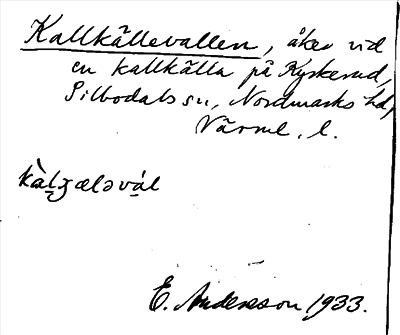 Kallkällevallen, åker vid
en kallkälla på Kyrkerud,
Silbodals sn, Nordmarks hd,
Värml. l.
E. Andersson 1933.